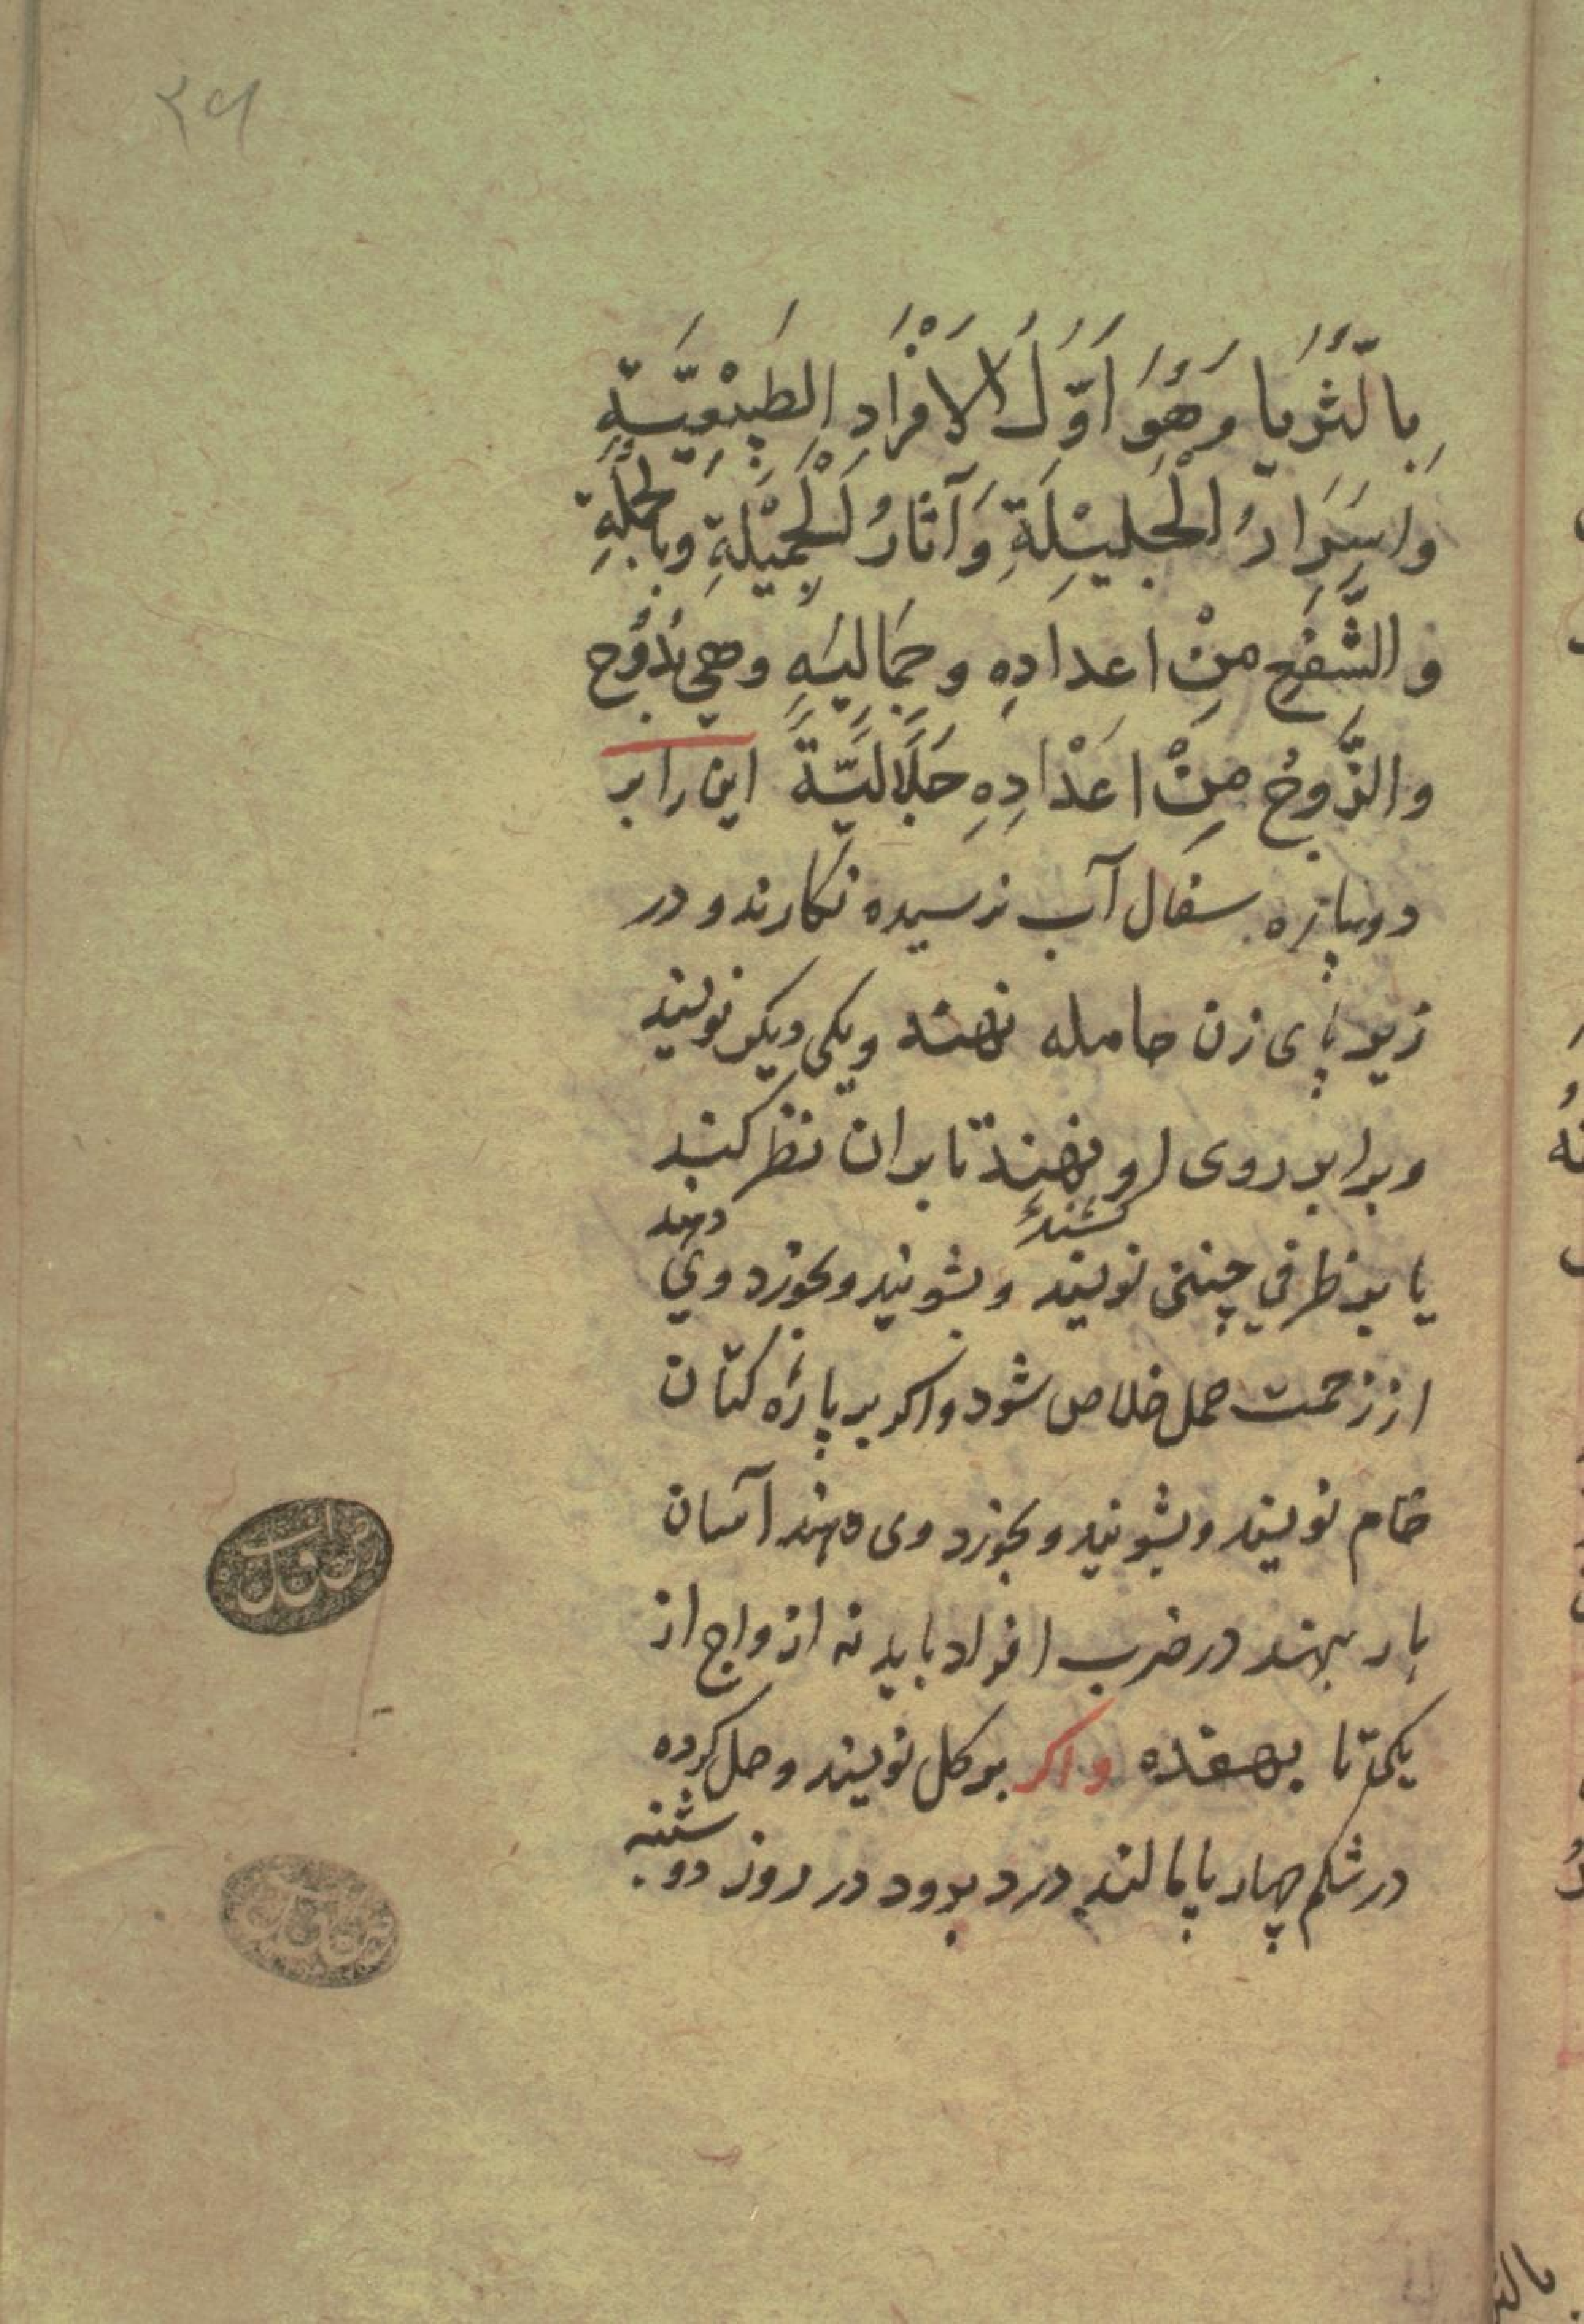 ۲۹
بِالثُّرَیا وَهُوَ اَوَّلُ الاَفْرَادِ الطَبِیْعِیَّةِ
وَاسرَارُ الْجَلیْلَةِ وَآثارُ الْجَمِیْلَةِ وبالجُملَةِ
والشَّفعِ مِنْ اعدادِهِ وجَمَالِیَهِ وهی بُدُوْح
والزَّوجُ مِنْ اعْدادِهِ جَلَالیَّةً این را بر
دوپاره سفال آب نرسیده نکارند و در
زیر پای زن حامله نهند ویکی دیکر نویسند
وبرابر روی او نهند تا بران نظر کند
یا بر ظرفی چینی نویسند وبشویند وبخورد وی دهند
از زحمت حمل خلاص شود واکر بر پارۀ کتان
خام نویسند وبشویند وبخورد وی دهند آسان
بار بنهد در ضرب افراد باید نه ازواج از
یکی تا بهفده واکر بر کل نویسند وحل کرده
در شکم چهار پا بمالند درد برود در روز دوشنبه